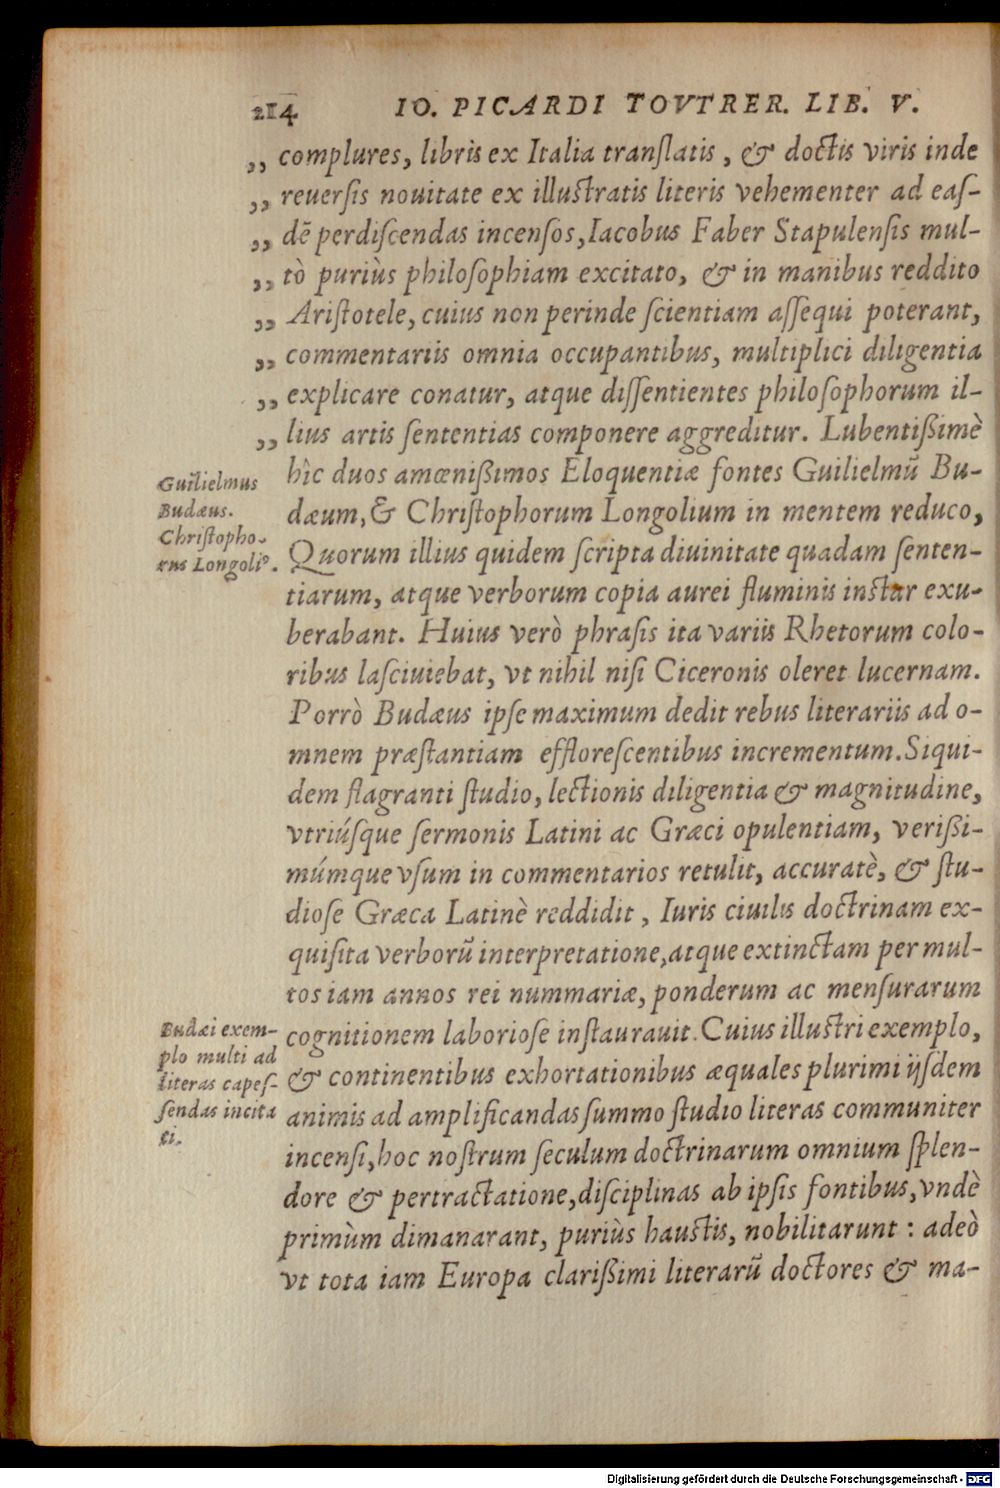 214 IO. PICARDI TOVTRER. LIB. V.
„ complures, libris ex Italia tranſlatis, & doctis viris inde
„ reuerſis nouitate ex illuſtratis literis vehementer ad eaſ-
„ dē perdiſcendas incenſos, Iacobus Faber Stapulenſis mul-
„ tò puriùs philoſophiam excitato, & in manibus reddito
„ Ariſtotele, cuius non perinde ſcientiam aſſequi poterant,
„ commentariis omnia occupantibus, multiplici diligentia
„ explicare conatur, atque diſſentientes philoſophorum il-
„ lius artis ſententias componere aggreditur. Lubentißimè
hîc duos amœnißimos Eloquentiæ fontes Guilielmū Bu-
dæum, & Chriſtophorum Longolium in mentem reduco,
Quorum illius quidem ſcripta diuinitate quadam ſenten-
tiarum, atque verborum copia aurei fluminis inſtar exu-
berabant. Huius verò phraſis ita variis Rhetorum colo-
ribus laſciuiebat, vt nihil niſi Ciceronis oleret lucernam.
Porrò Budæus ipſe maximum dedit rebus literariis ad o-
mnem præſtantiam effloreſcentibus incrementum. Siqui-
dem flagranti ſtudio, lectionis diligentia & magnitudine,
vtriúſque ſermonis Latini ac Græci opulentiam, verißi-
múmque vſum in commentarios retulit, accuratè, & ſtu-
dioſe Græca Latinè reddidit, Iuris ciuilis doctrinam ex-
quiſita verborū interpretatione, atque extinctam per mul-
tos iam annos rei nummariæ, ponderum ac menſurarum
cognitionem laborioſe inſtaurauit. Cuius illuſtri exemplo,
& continentibus exhortationibus æquales plurimi ijſdem
animis ad amplificandas ſummo ſtudio literas communiter
incenſi, hoc noſtrum ſeculum doctrinarum omnium ſplen-
dore & pertractatione, diſciplinas ab ipſis fontibus, vndè
primùm dimanarant, puriùs hauſtis, nobilitarunt : adeò
vt tota iam Europa clarißimi literarū doctores & ma-
Guilielmus
Budæus.
Chriſtopho-
rus Longoliꝰ.
Budæi exem-
plo multi ad
literas capeſ-
ſendas incita
ti.
Digitalisierung gefördert durch die Deutsche Forschungsgemeinschaft - DFG